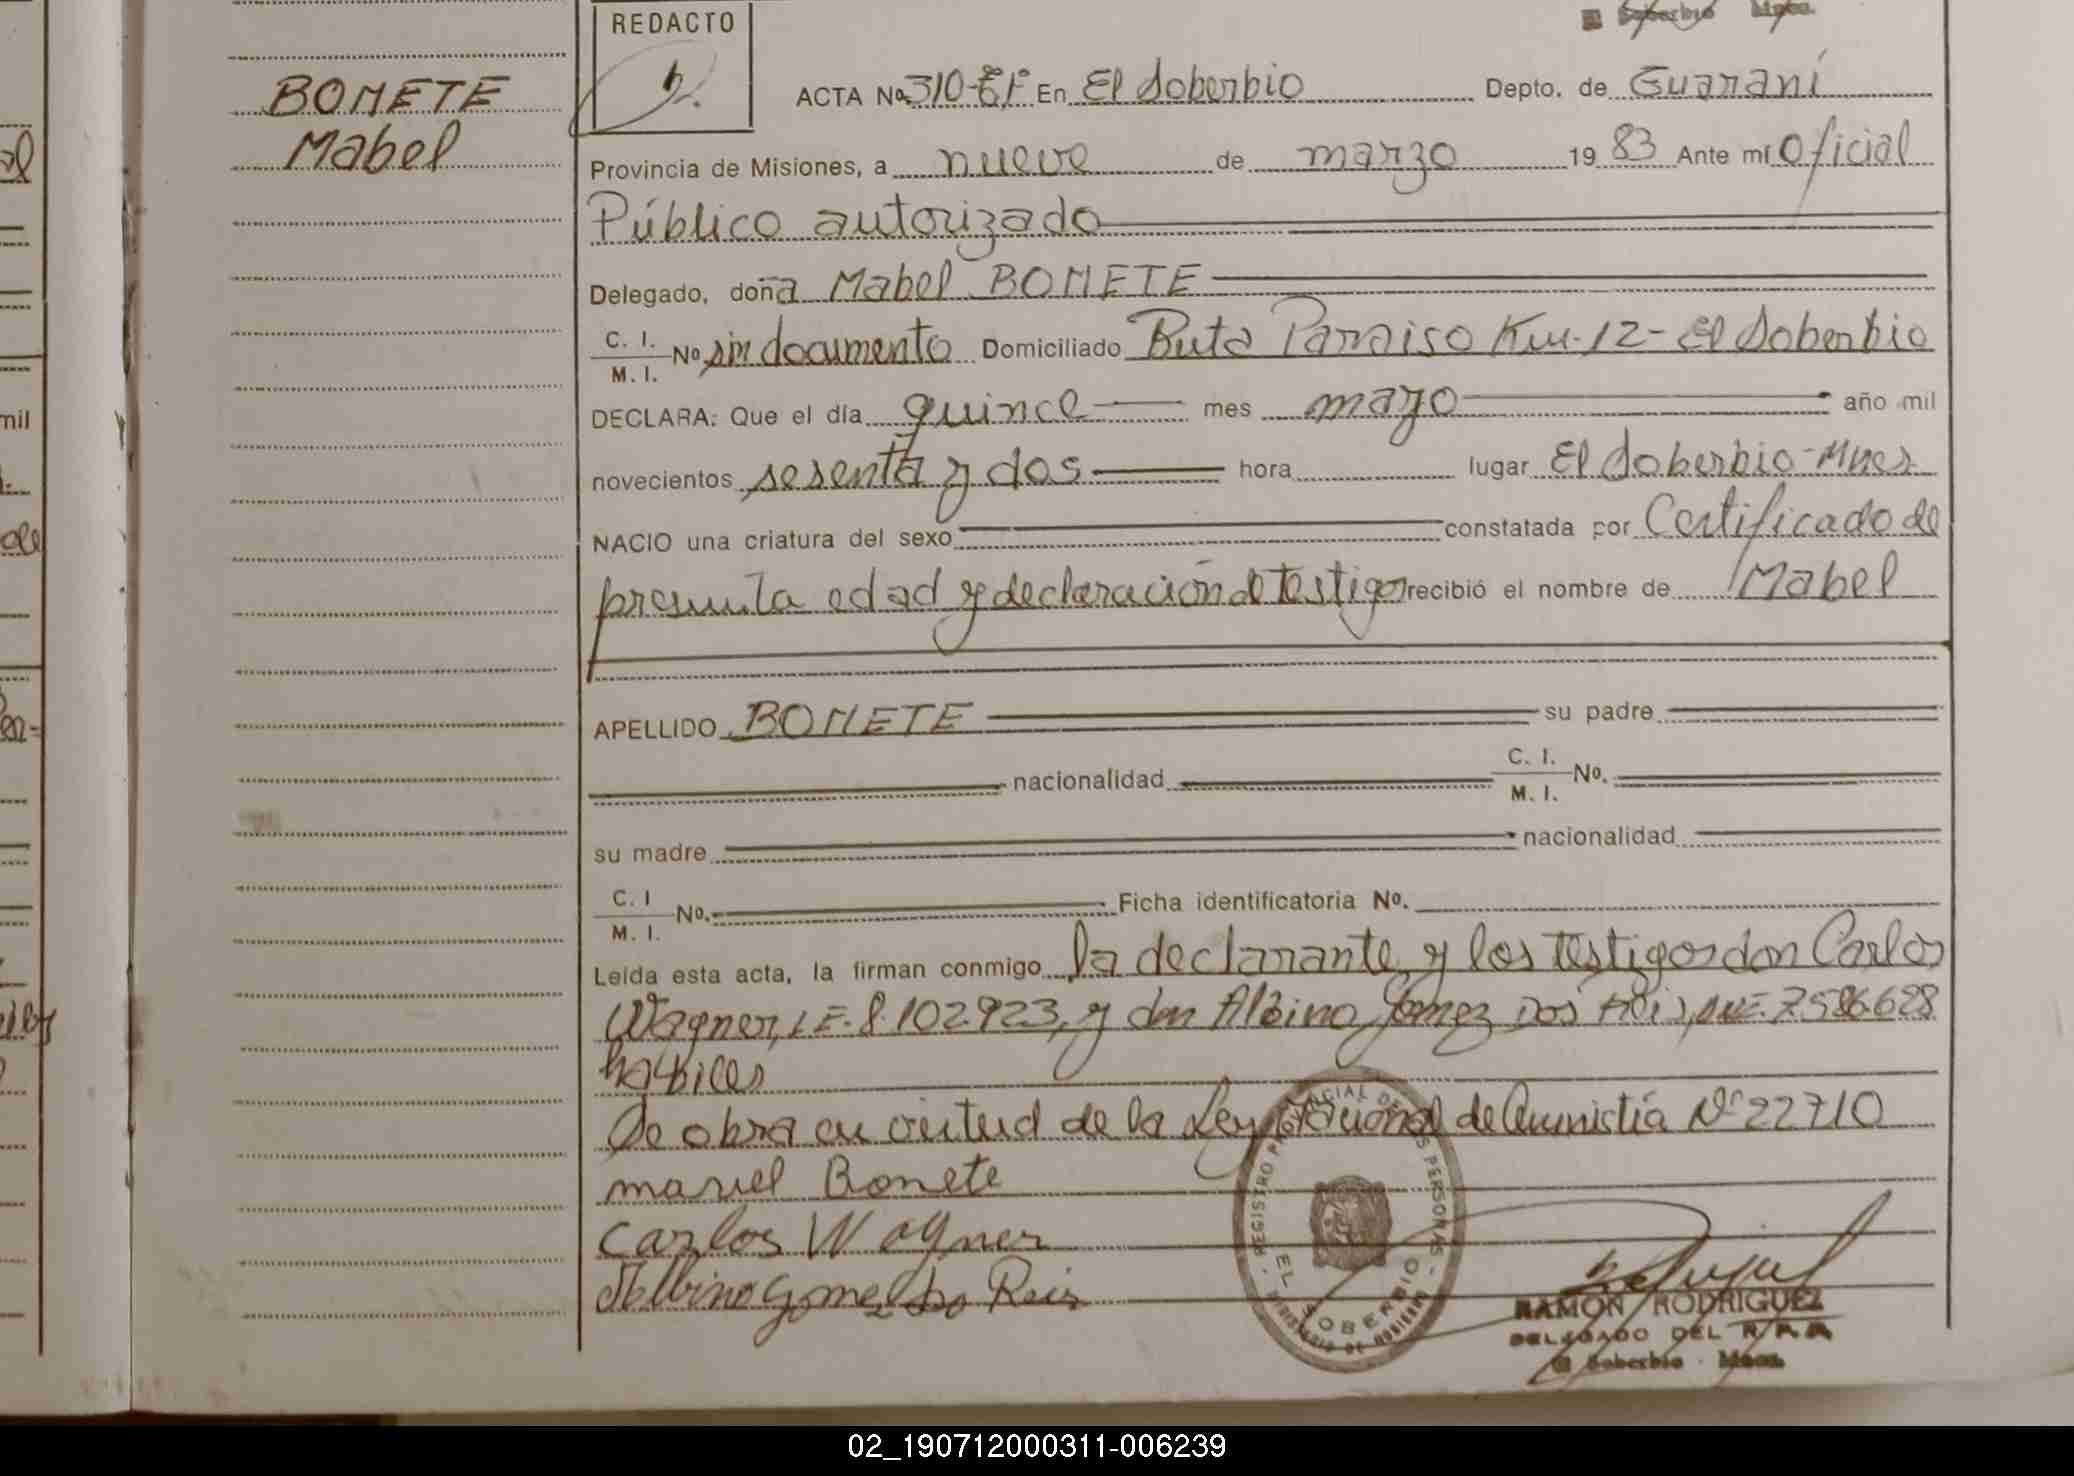 REDACTO
El Soberbio Mnes.
BONETE
Mabel
ACTA No. 310- En El Soberbio Depto. de Guaraní
Provincia de Misiones, a nueve de marzo 19 83 Ante mí Oficial
Público autorizado
Delegado, doña Mabel BONETE
C. I.
M. I. No sin documento Domiciliado Ruta Paraiso Km. 12 - El Soberbio
DECLARA: Que el día quince mes mayo año mil
novecientos sesenta y dos hora lugar El Soberbio - Mnes
NACIO una criatura del sexo constatada por Certificado de
presunta edad y declaración de testigos recibió el nombre de Mabel
APELLIDO BONETE su padre
nacionalidad C. I.
M. I. No.
su madre nacionalidad
C. I
M. I. No. Ficha identificatoria No.
Leída esta acta, la firman conmigo la declarante y los testigos don Carlos
Wagner, L.E. 8.102.923, y don Albino Gomez Dos Reis, 7.586.628
habiles
Se obra en virtud de la Ley Nacional de Amnistía Nº 22710
marvel Bonete
Carlos Wagner
Albino Gomes Do Reis
REGISTRO PROVINCIAL DE LAS PERSONAS
EL SOBERBIO
MINISTERIO DE GOBIERNO
RAMON RODRIGUEZ
DELEGADO DEL R.P.P.
El Soberbio - Mnes.
mil
02_190712000311-006239